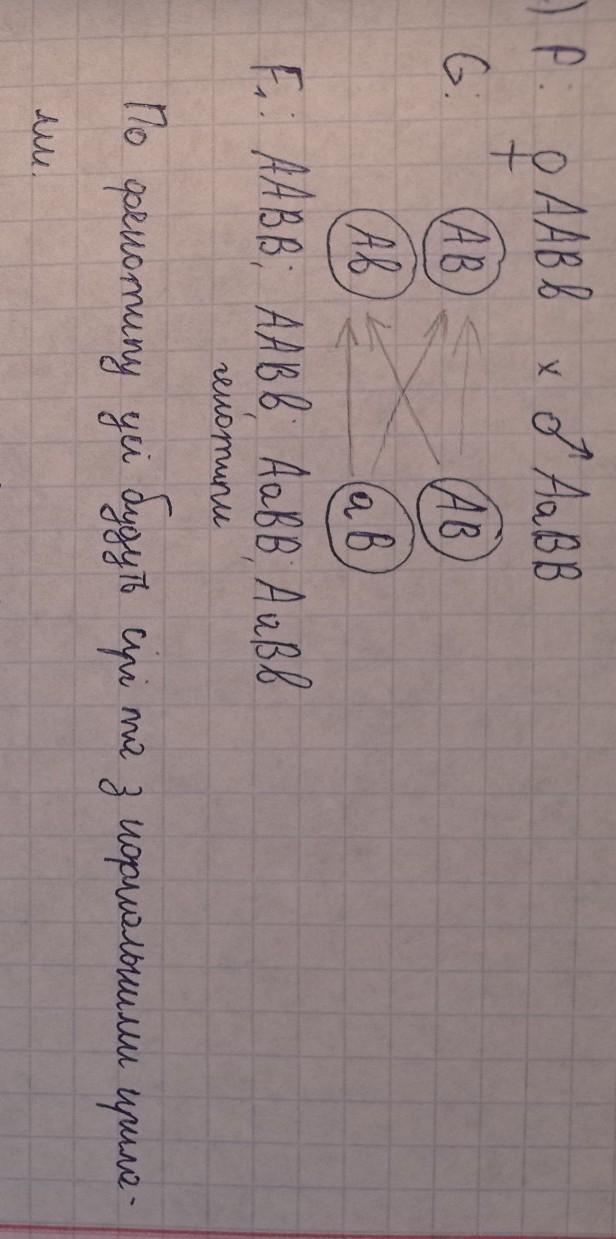 ) P: ♀ AABb x ♂ AaBB
G: AB AB
Ab aB
F₁: AABB; AABb; AaBB; AaBb
генотипи
По фенотипу усі будуть сірі та з нормальними крила-
ми.